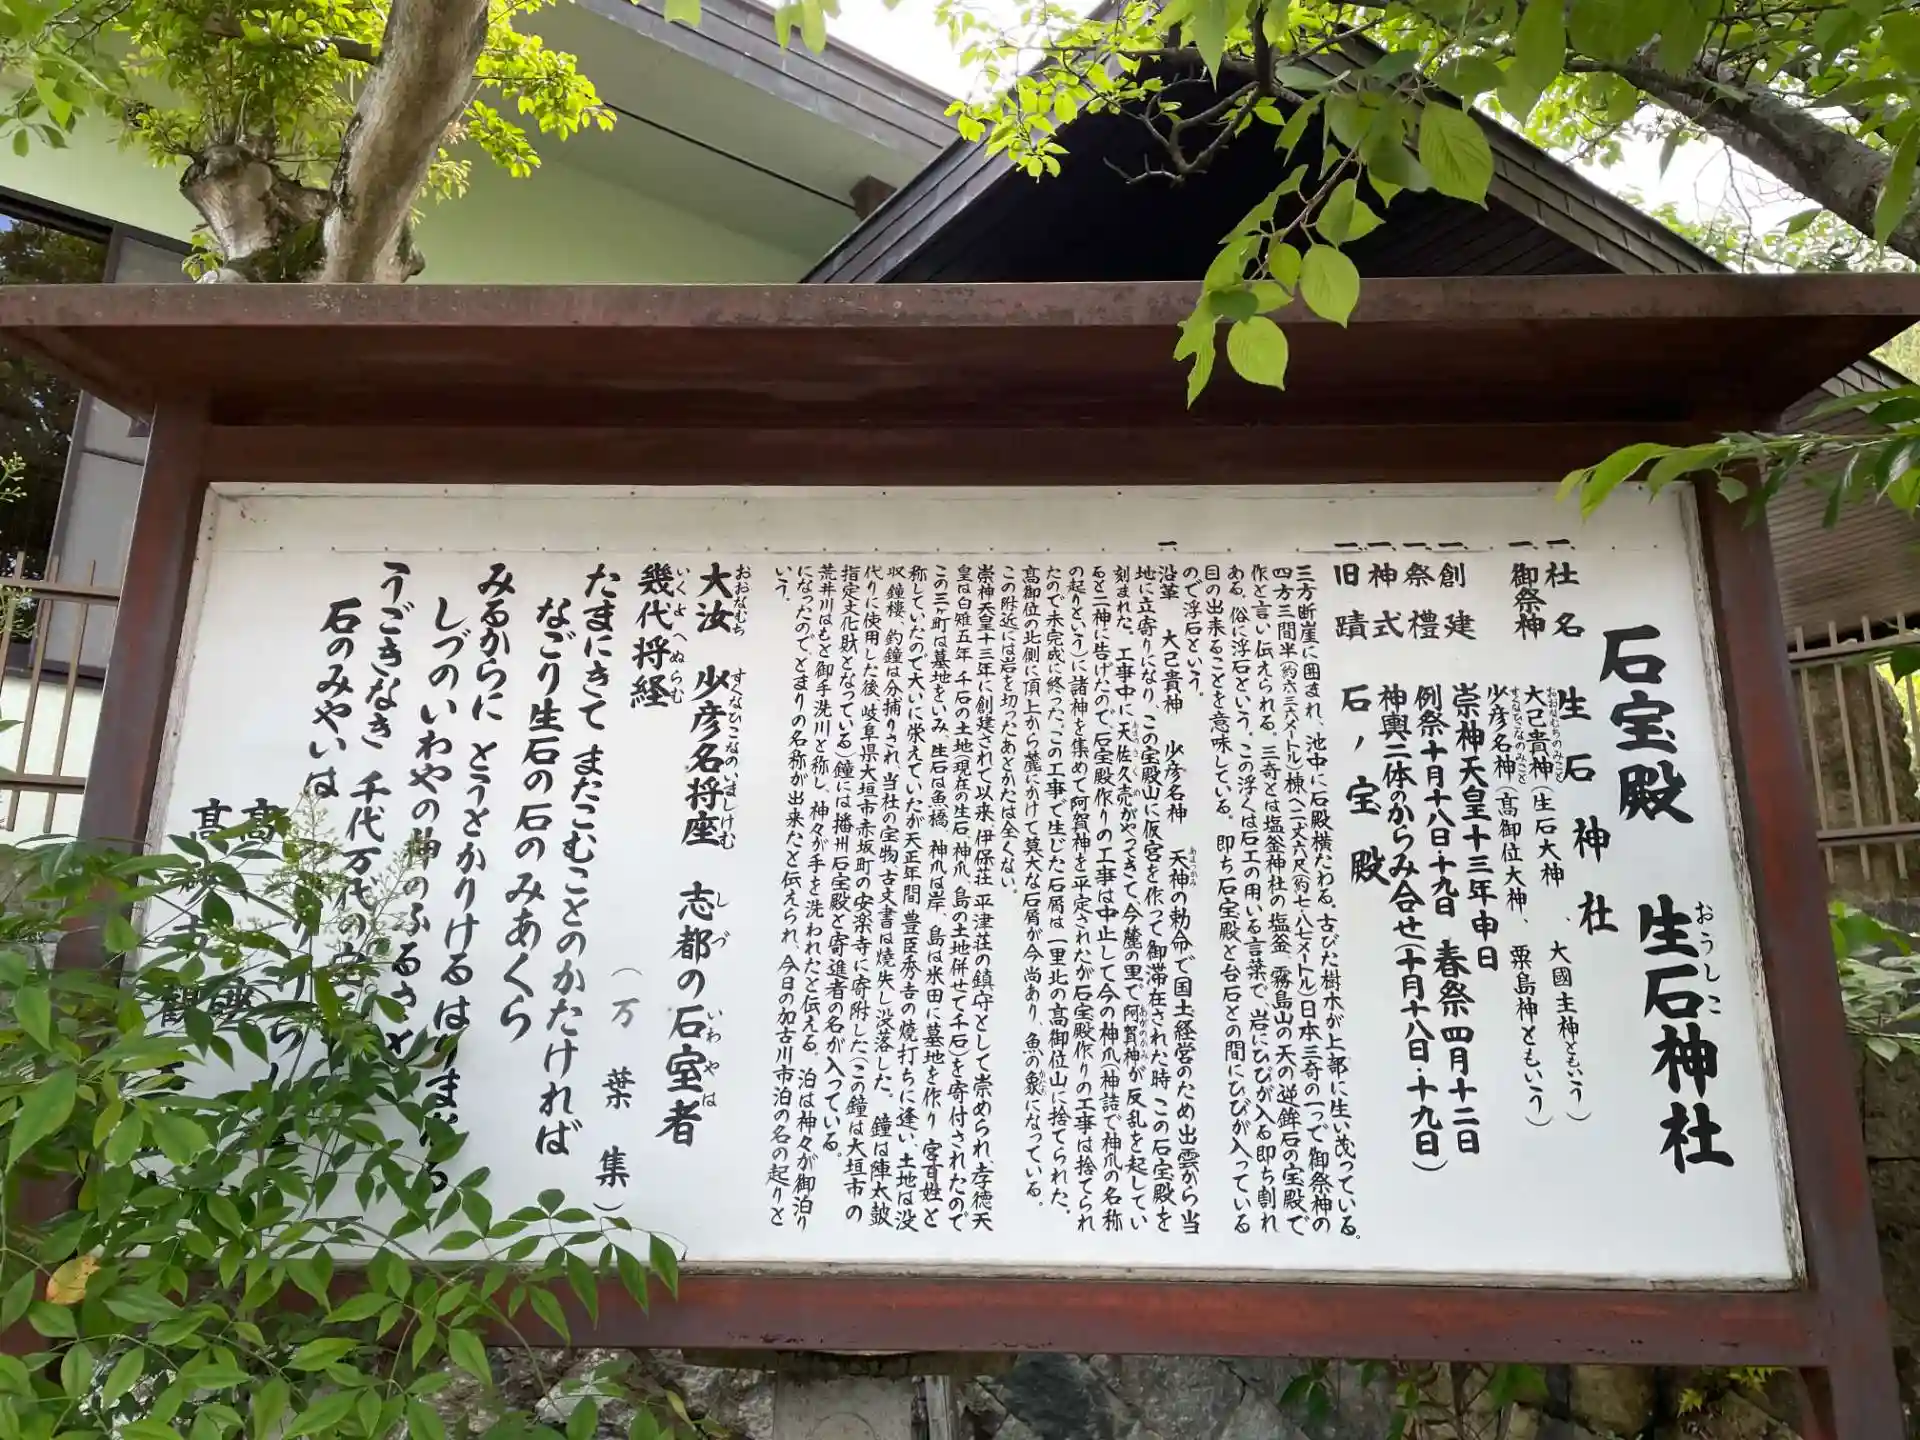 石宝殿　生石神社
おうしこ
一、社名　生石神社
一、御祭神　大己貴神（生石大神、大國主神ともいう）
おおなむちのみこと
少彦名神（高御位大神、粟島神ともいう）
すなひこなのみこと
一、創建　崇神天皇十三年申日
一、祭禮　例祭十月十八日・十九日　春祭四月十二日
一、神式　神輿二体のからみ合せ（十月十八日・十九日）
一、旧蹟　石ノ宝殿
三方断崖に囲まれ、池中に石殿横たわる。古びた樹木が上部に生い茂っている。
四方三間半（約六・三六メートル）棟へ二丈六尺（約七・八七メートル）日本三奇の一つで御祭神の
作と言い伝えられる。三奇とは塩釜神社の塩釜、霧島山の天の逆鉾石の宝殿で
ある。俗に浮石という。この浮くは石工の用いる言葉で、岩にひびが入る即ち割れ
目の出来ることを意味している。即ち石宝殿と台石との間にひびが入っている
ので浮石という。
一、沿革　大己貴神　少彦名神　天神の勅命で国土経営のため出雲から当
あまつかみ
地に立寄りになり、この宝殿山に仮宮を作って御滞在された時この石宝殿を
刻まれた。工事中に天佐久売がやってきて今麓の里で阿賀神が反乱を起してい
ると二神に告げたので、石宝殿作りの工事は中止して今の神爪（神詰で神爪の名称
の起りという）に諸神を集めて阿賀神を平定されたが石宝殿作りの工事は捨てられ
たので未完成に終った。この工事で生じた石屑は一里北の高御位山に捨てられた。
高御位の北側に頂上から麓にかけて莫大な石屑が今尚あり、魚の象になっている。
この附近には岩を切ったあとかたは全くない。
崇神天皇十三年に創建されて以来、伊保荘、平津荘の鎮守として崇められ、孝徳天
皇は白雉五年、千石の土地現在の生石、神爪、島の土地併せて千石）を寄付されたので
この三ヶ町は墓地をいみ、生石は魚橋、神爪は岸、島は米田に墓地を作り　宮百姓と
称していたので大いに栄えていたが天正年間豊臣秀吉の焼打ちに逢い、土地は没
収、鐘楼、釣鐘は分捕りされ、当社の宝物、古文書は焼失し没落した。鐘は陣太鼓
代りに使用した後、岐阜県大垣市赤坂町の安楽寺に寄附した（この鐘は大垣市の
指定文化財となっている）鐘には播州石宝殿と寄進者の名が入っている。
荒井川はもと御手洗川と称し、神々が手を洗われたと伝える。泊は神々が御泊り
になったのでとまりの名称が出来たと伝えられ、今日の加古川市泊の名の起りと
いう。
大汝　少彦名将座　志都の石室者
おおなむち　すくなひこなのいましけむ　しづ　いわやは
幾代将経
いくよへぬらむ
（万葉集）
たまにきて　またこむことのかたければ
なごり生石の石のみあくら
みるからに　とうとかりけるはりまなる
しづのいわやの神のふるさと
うごきなき　千代万代の
石のみやいは
高
高砂